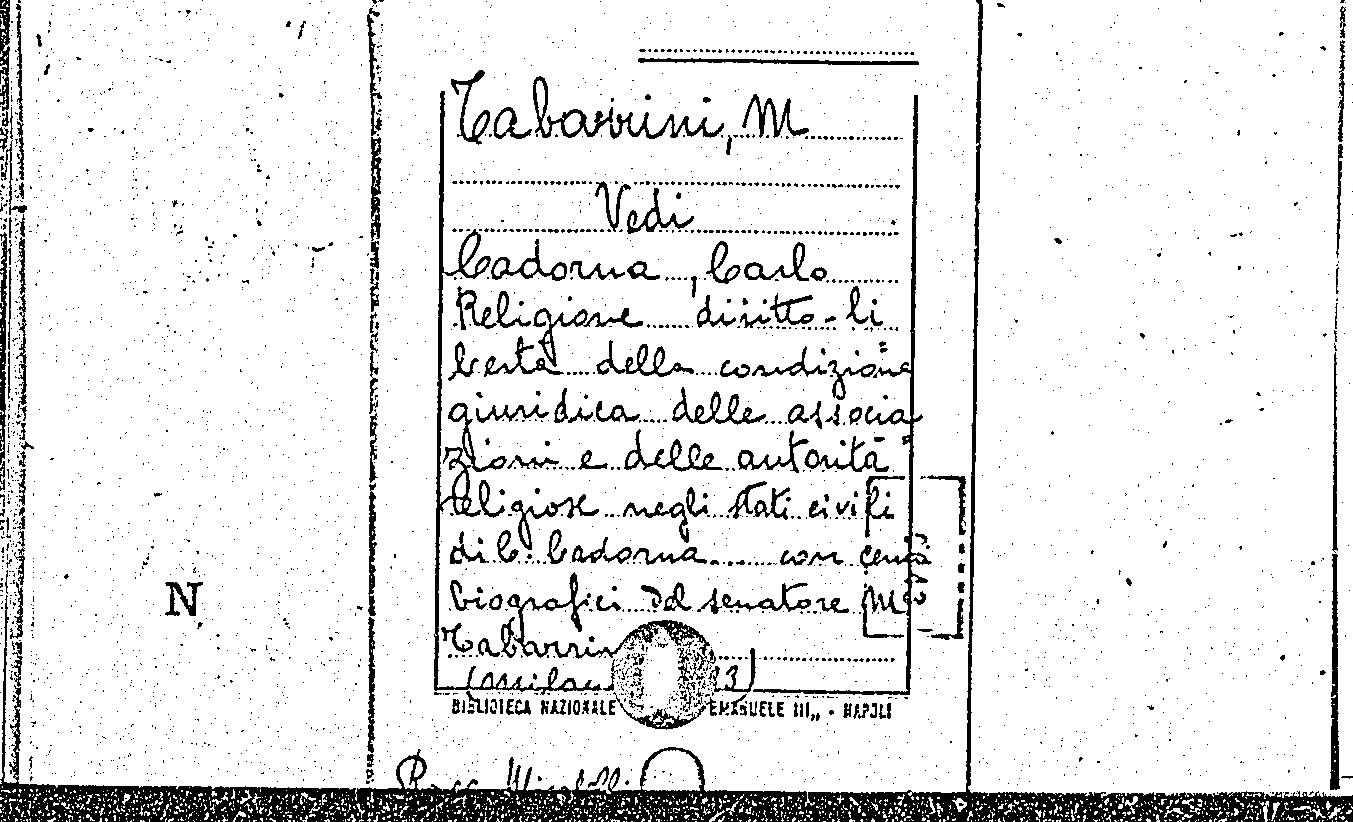 Tabarrini, M
Vedi
Cadorna, Carlo
Religione diritto-li
bertà della condizione
giuridica delle associa
zioni e delle autorità
religiose negli stati civili
di C. Cadorna.... con cenni
biografici del senatore M.
Tabarrin
(Milan 3)
BIBLIOTECA NAZIONALE EMANUELE III„ - NAPOLI
N